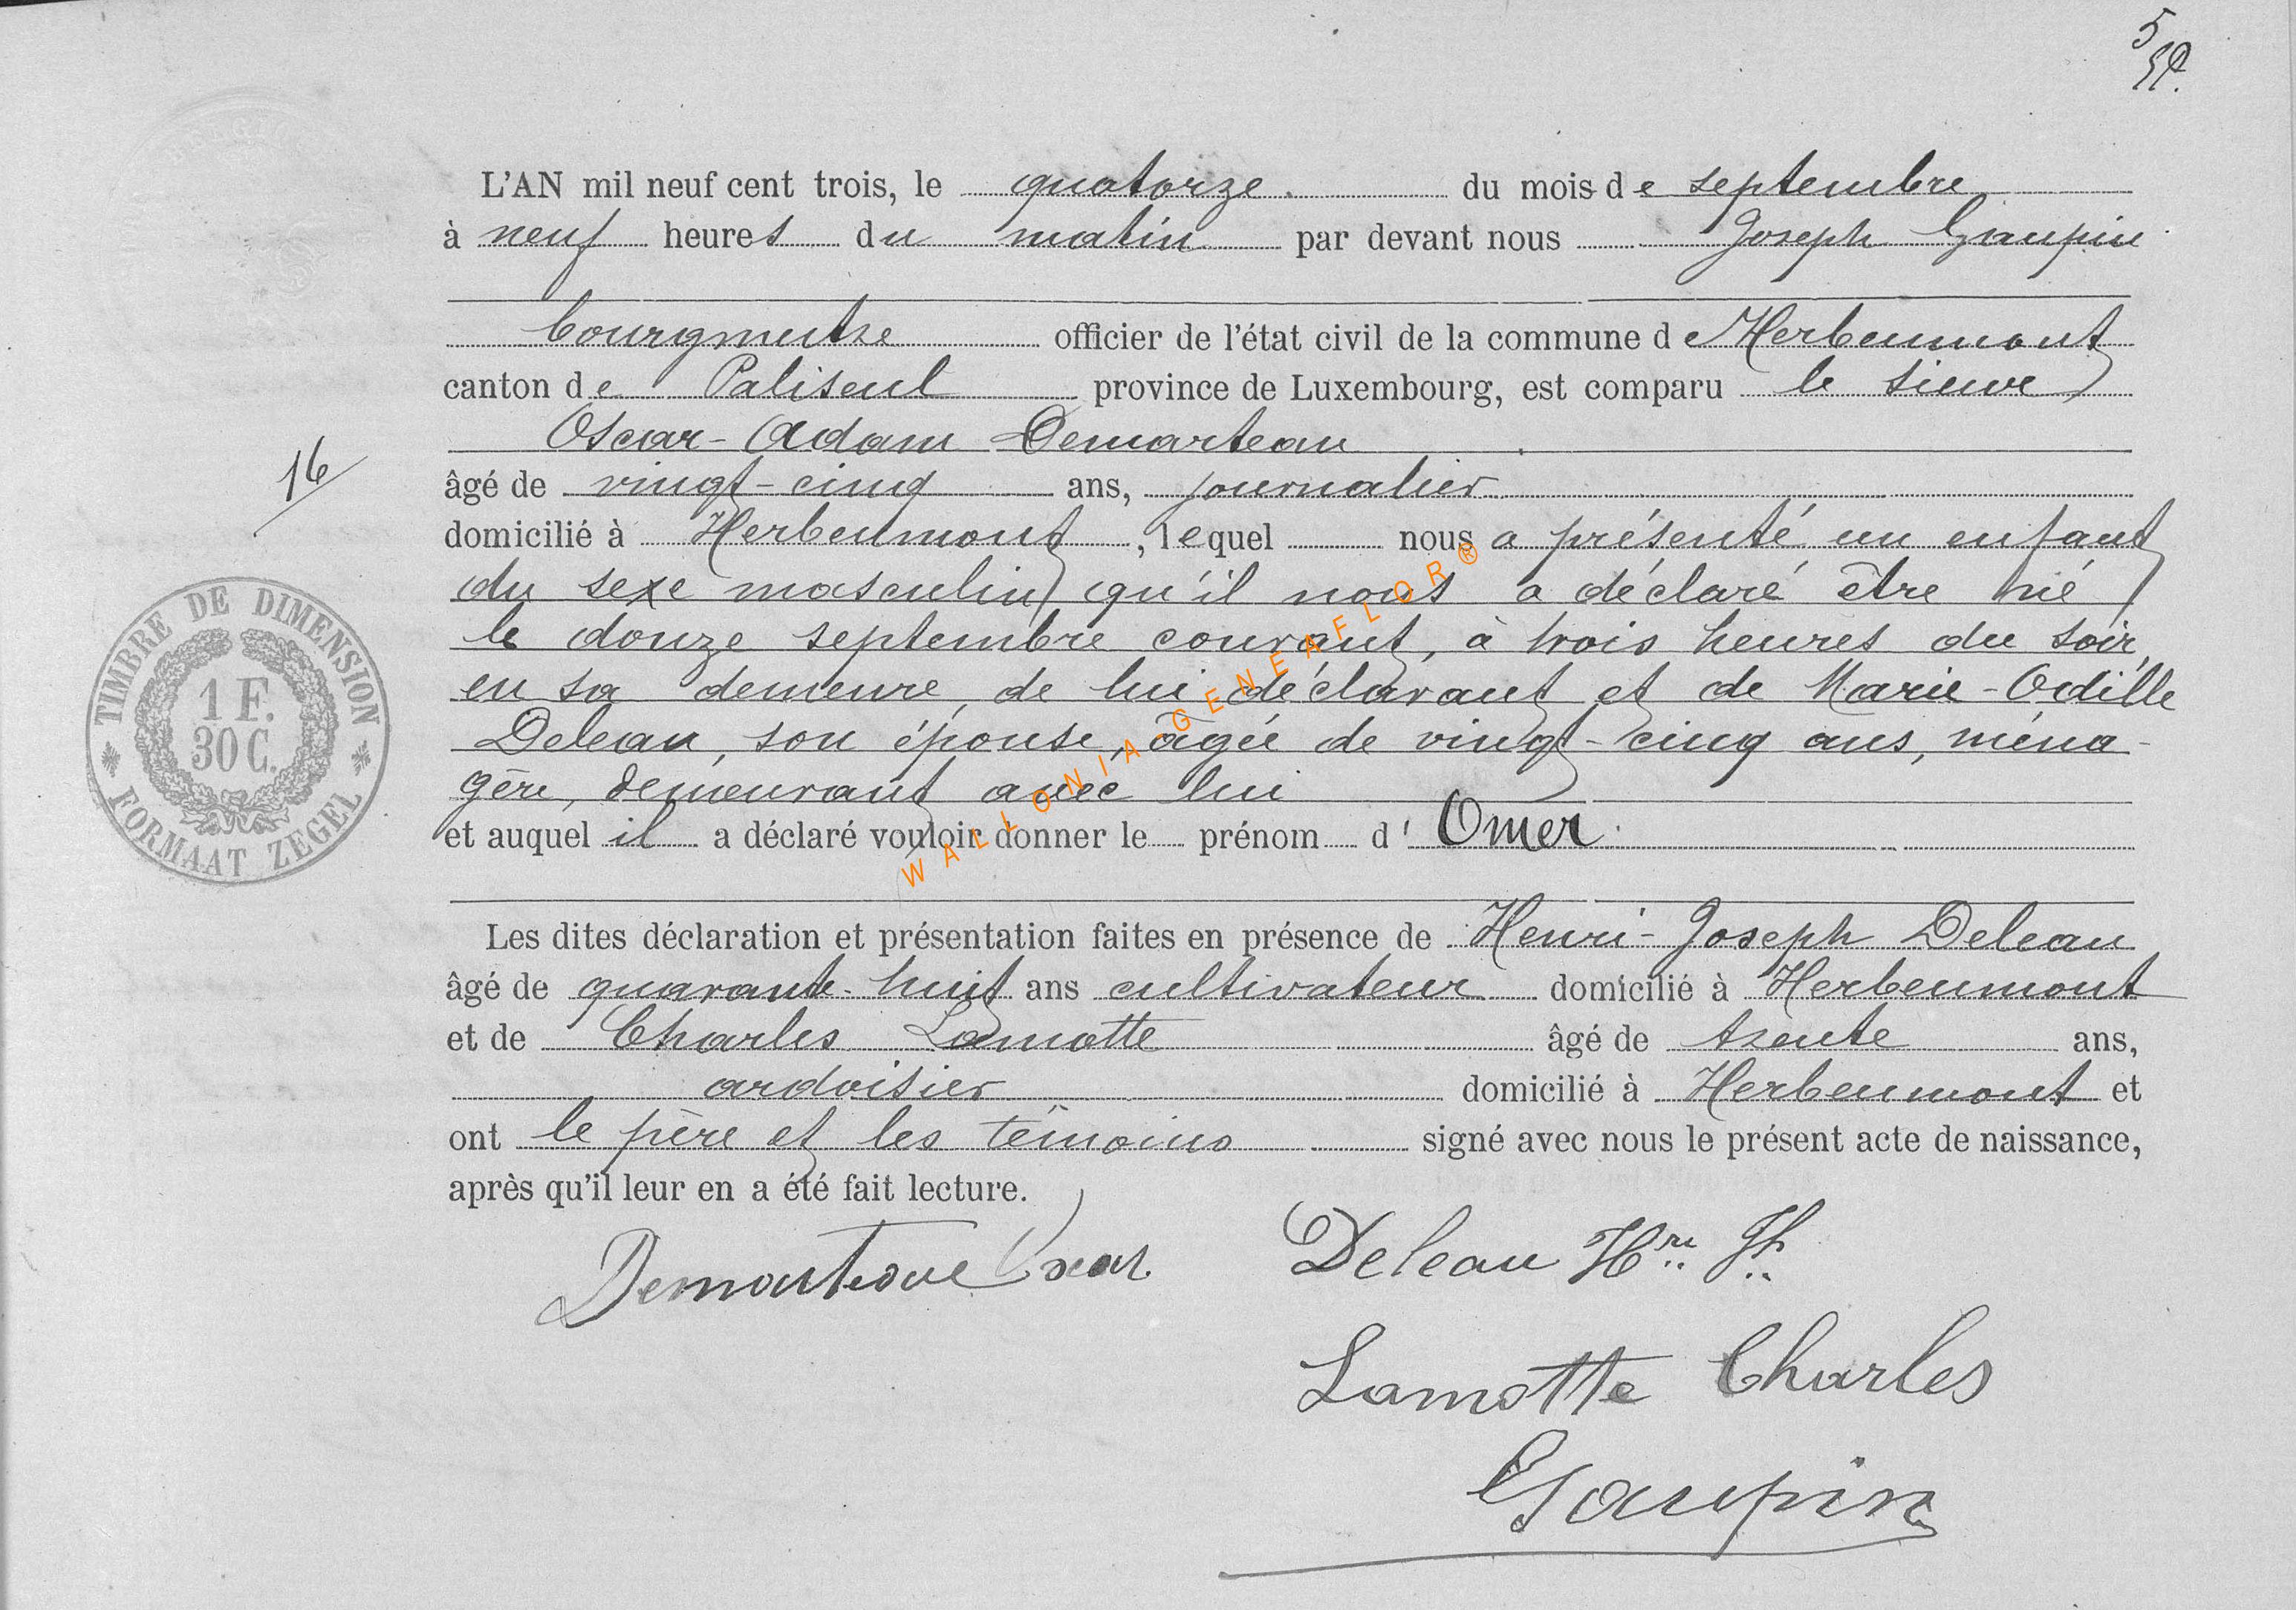 5
L'AN mil neuf cent trois, le quatorze du mois de septembre
à neuf heures du matin par devant nous Joseph Gaupin
bourgmestre officier de l'état civil de la commune de Herbeumont
canton de Paliseul province de Luxembourg, est comparu le sieur
Oscar-Adam Demarteau
16
âgé de vingt-cinq ans, journalier
domicilié à Herbeumont, lequel nous a présenté un enfant
du sexe masculin qu'il nous a déclaré être né
le douze septembre courant, à trois heures du soir,
en sa demeure, de lui déclarant et de Marie-Odille
Deleau, son épouse, âgée de vingt-cinq ans, ména-
gère, demeurant avec lui
et auquel il a déclaré vouloir donner le prénom d'Omer.
TIMBRE DE DIMENSION
1 F.
30 C.
FORMAAT ZEGEL
WALLONIA-GENEAFLOR®
Les dites déclaration et présentation faites en présence de Henri-Joseph Deleau
âgé de quarante-huit ans cultivateur domicilié à Herbeumont
et de Charles Lamotte âgé de trente ans,
ardoisier domicilié à Herbeumont et
ont le père et les témoins signé avec nous le présent acte de naissance,
après qu'il leur en a été fait lecture.
Demarteau Oscar
Deleau Hri Jh
Lamotte Charles
Gaupin